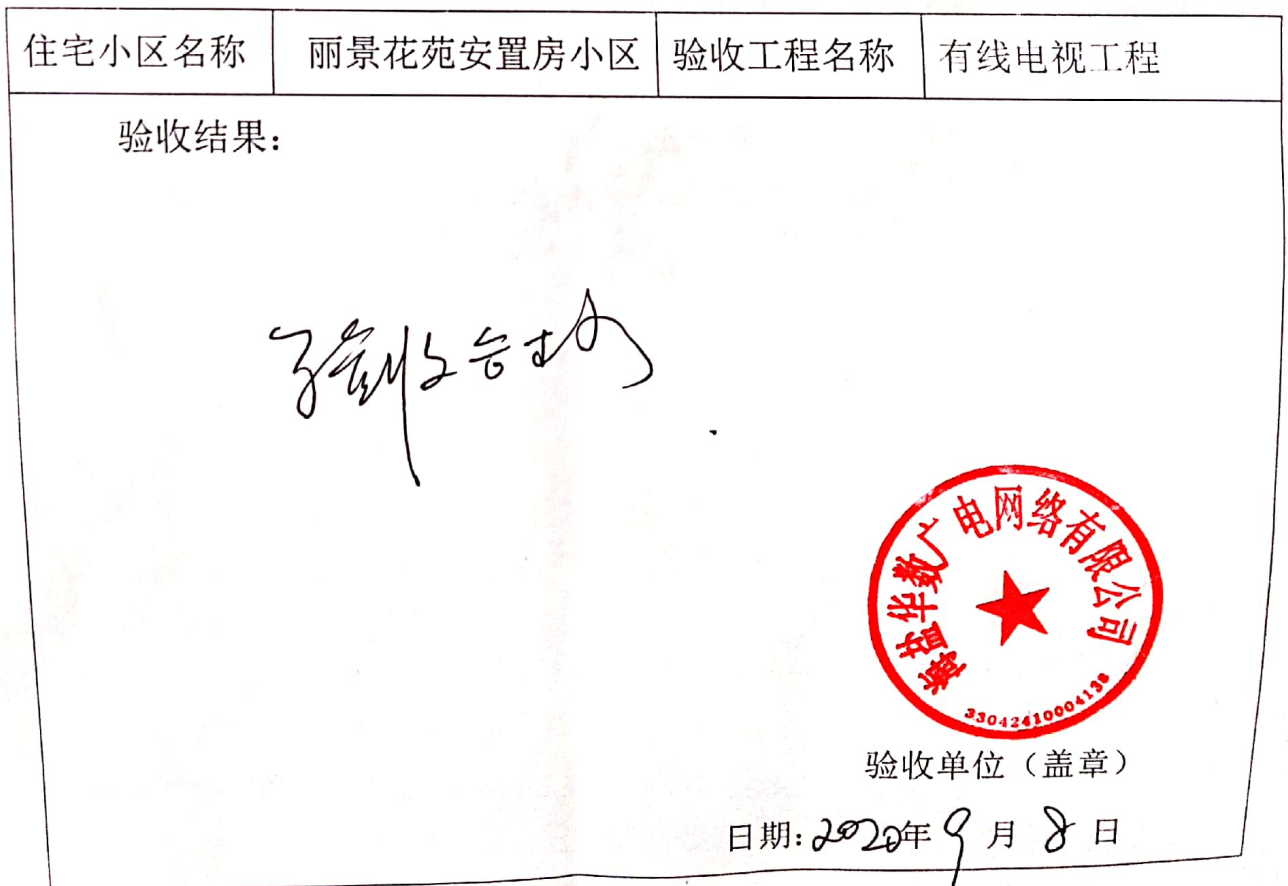 住宅小区名称 丽景花苑安置房小区 验收工程名称 有线电视工程
验收结果:
验收合格
海盐华数广电网络有限公司
33042410004138
验收单位（盖章）
日期:2020年9月8日